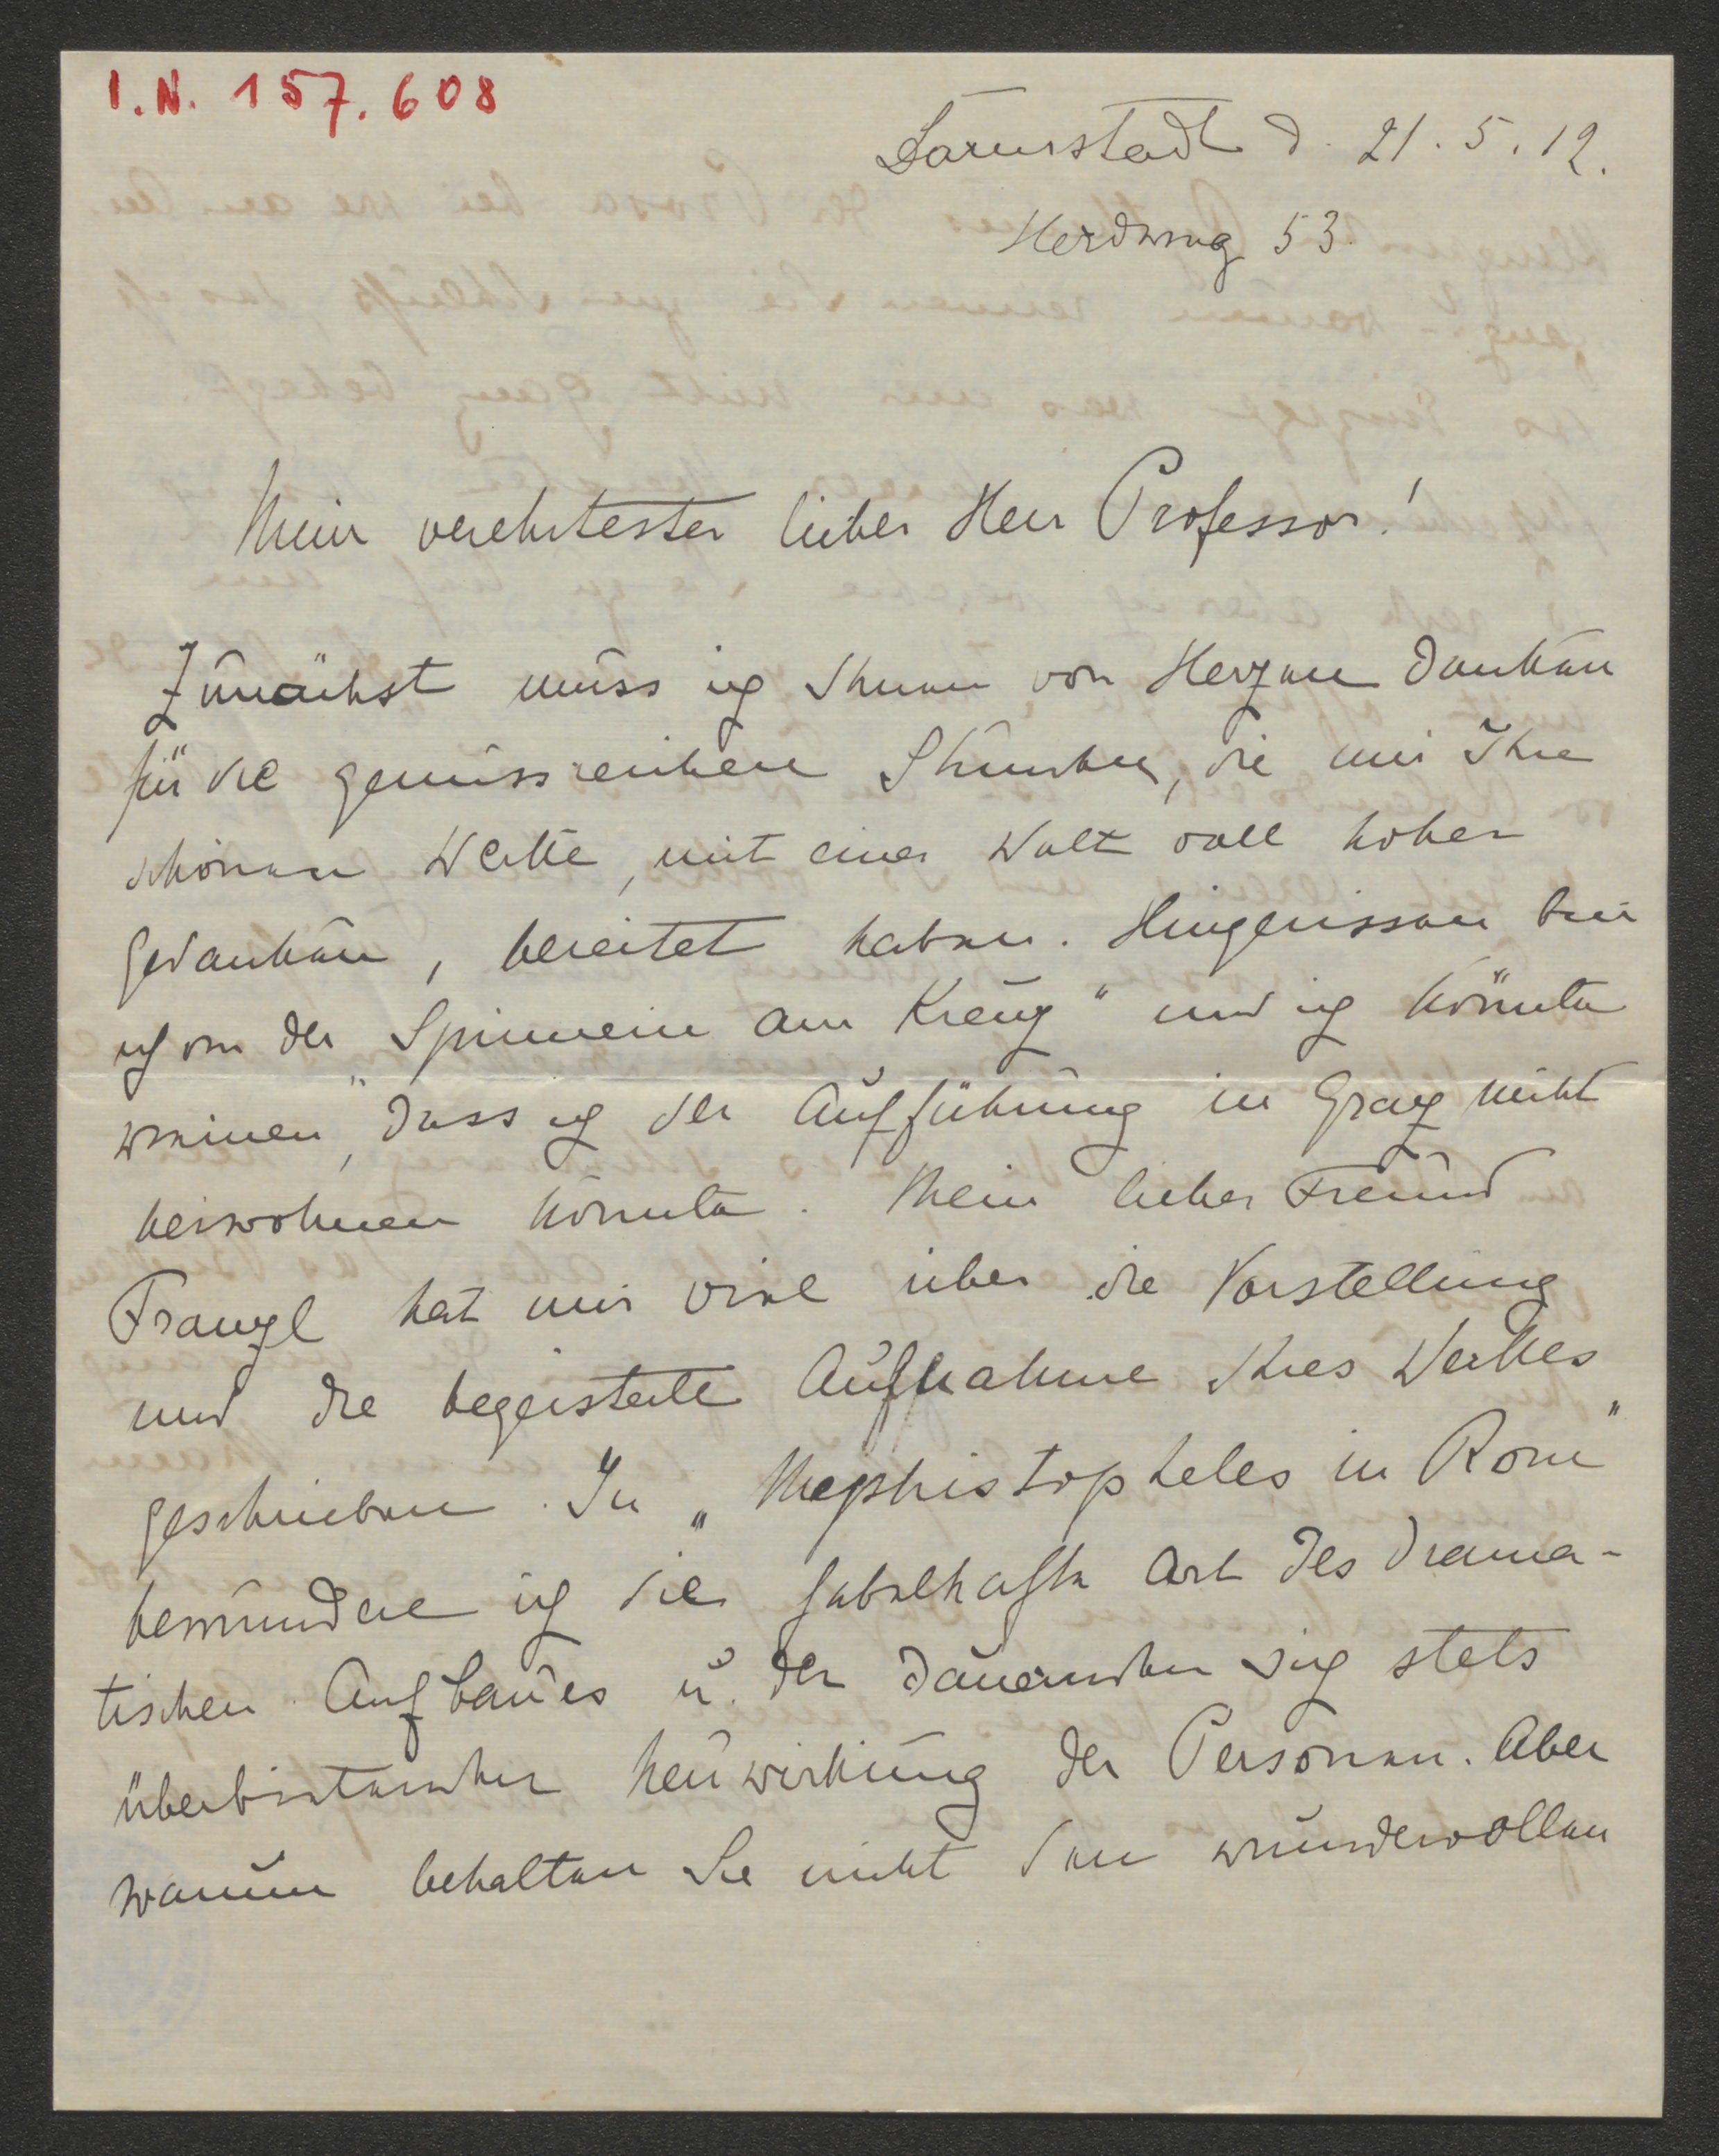 I.N. 157.608
Darmstadt d. 21.5.12.
Herdweg 53.
Mein verehrtester lieber Herr Professor!
Zunächst muss ich Ihnen von Herzen danken
für die genussreichen Stunden, die mir Ihre
schönen Werke, mit einer Welt voll hoher
Gedanken, bereitet haben. Hingerissen bin
ich von der „Spinnerin am Kreuz" und ich könnte
weinen, dass ich der Aufführung in Graz nicht
beiwohnen konnte. Mein lieber Freund
Franzl hat mir viel über die Vorstellung
und die begeisterte Aufnahme Ihres Werkes
geschrieben. In „Mephistopheles in Rom"
bewundere ich die fabelhafte Art des drama-
tischen Aufbaues u. der dauernden sich stets
überbietenden Neuwirkung der Personen. Aber
warum behalten Sie nicht den wundervollen